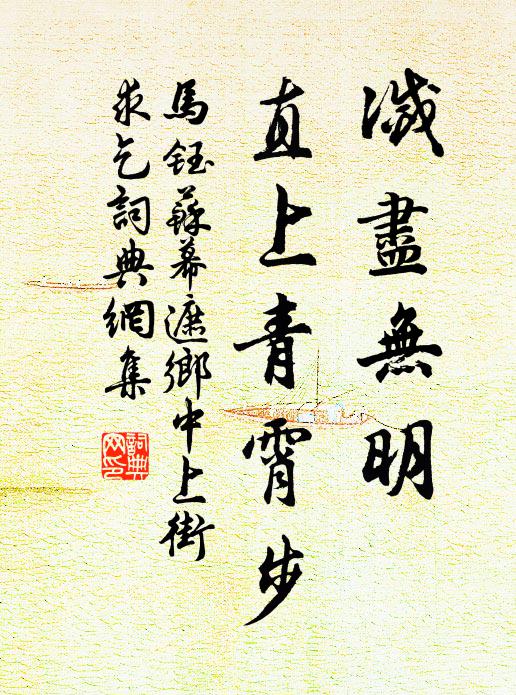 滅盡無明
直上青霄步
馬鈺蘇幕遮鄉中上街
求乞詞典網集
詞典网印